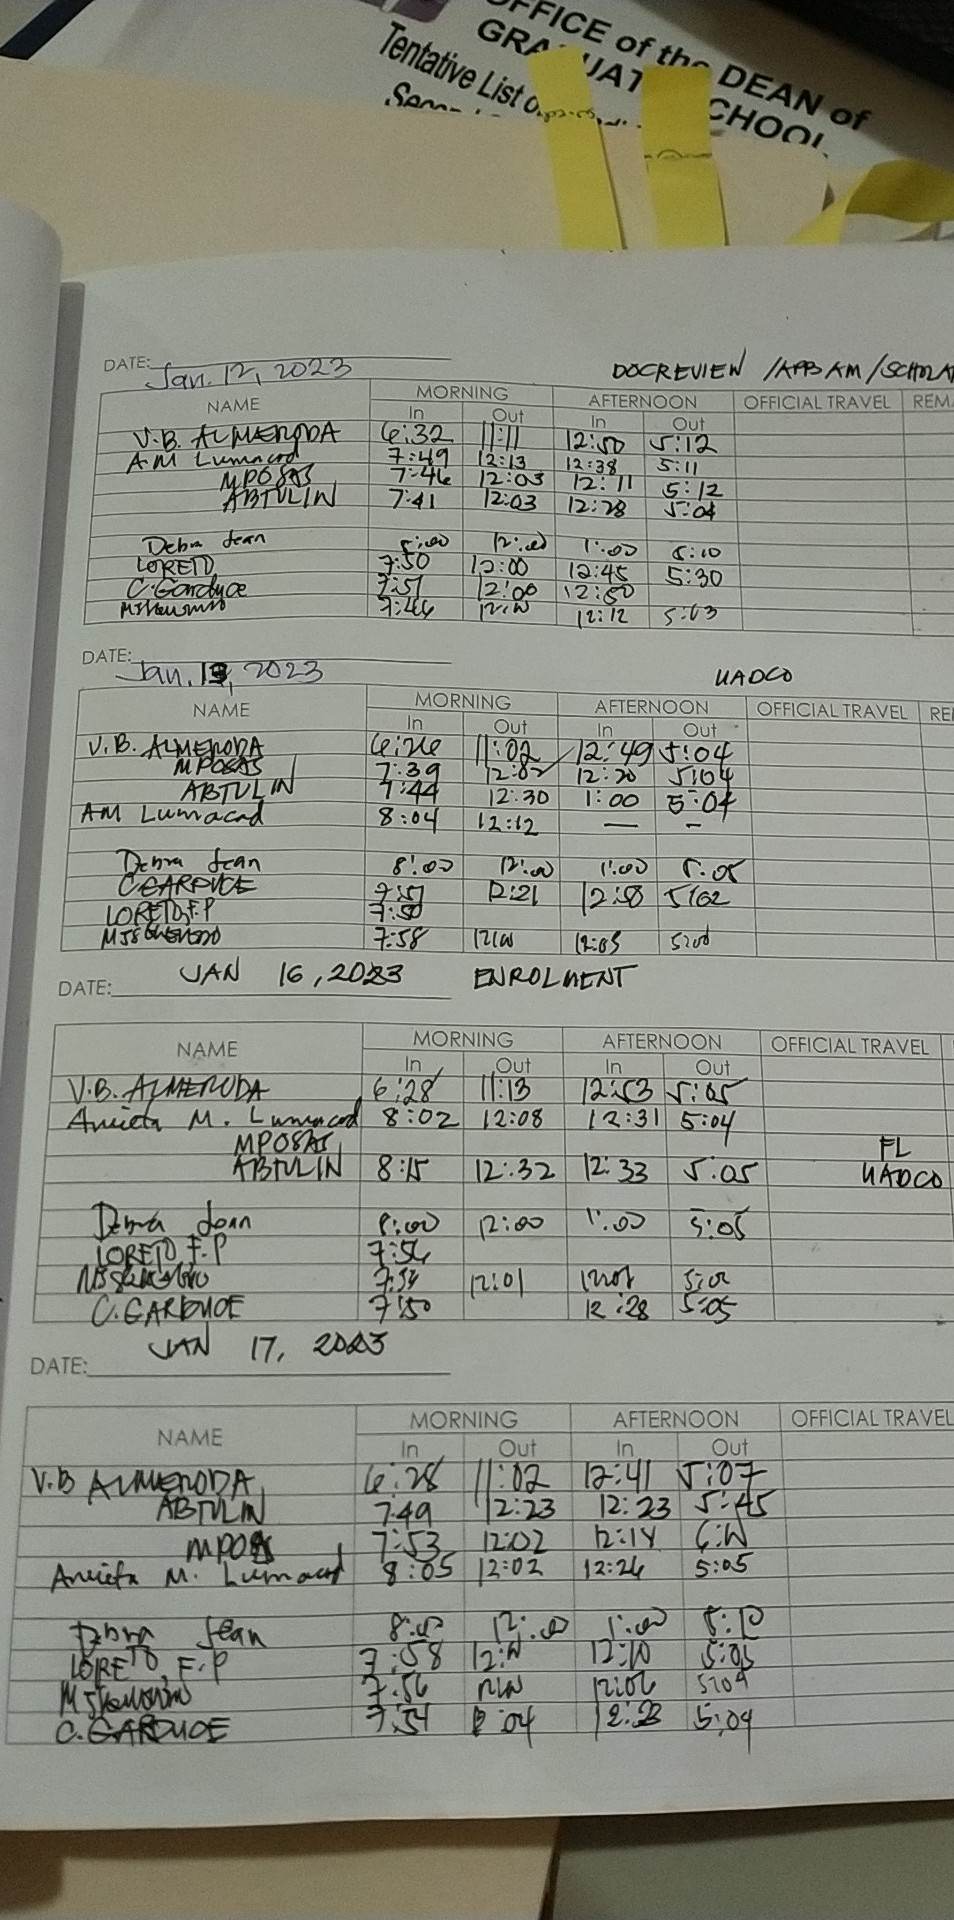 OFFICE of the DEAN of
GRADUAT SCHOOL
Tentative List
DATE: Jan. 12, 2023 DOCREVIEW /APP3 AM/SCHOLA
NAME MORNING AFTERNOON OFFICIAL TRAVEL REM
In Out In Out
V.B. ALMERODA 6:32 11:11 12:50 5:12
AM Lumacad 7:49 12:13 12:38 5:11
MPOSAS 7:46 12:03 12:11 5:12
ABTULIN 7:41 12:03 12:28 5:04
Debra Jean 8:00 12:00 1:00 5:10
LORETO 7:50 12:00 12:45 5:30
C. Garduce 7:51 12:00 12:50
7:46 12:12 5:03
DATE: Jan. 13, 2023 UADCO
NAME MORNING AFTERNOON OFFICIAL TRAVEL RE
In Out In Out
V.B. ALMERODA 6:26 11:02 12:49 5:04
MPOSAS 7:39 12:02 12:20 5:04
ABTULIN 7:44 12:30 1:00 5:04
AM Lumacad 8:04 12:12 — –
Debra Jean 8:00 12:00 1:00 5:05
C GARDUCE 7:51 12:21 12:58 5:02
LORETO, F.P 7:50
7:58 12:05
DATE: JAN 16, 2023 ENROLMENT
NAME MORNING AFTERNOON OFFICIAL TRAVEL
In Out In Out
V.B. ALMERODA 6:28 11:13 12:53 5:05
Aniceta M. Lumacad 8:02 12:08 12:31 5:04
MPOSAS FL
ABTULIN 8:15 12:32 12:33 5:05 UADCO
Debra Jean 8:00 12:00 1:00 5:05
LORETO F.P 7:56
12:01
C. GARDUCE 7:50 12:28 5:05
JAN 17, 2023
DATE:
NAME MORNING AFTERNOON OFFICIAL TRAVEL
In Out In Out
V.B ALMERODA 6:28 11:02 12:41 5:07
ABTULIN 7:49 12:23 12:23 5:45
MPOSAS 7:53 12:02 12:14
Aniceta M. Lumacad 8:05 12:02 12:26 5:05
Debra Jean 8:00 12:00 1:00 5:10
LORETO, F.P 7:58 12:10 5:05
7:56 12:06 5:04
C. GARDUCE 7:54 12:04 12:23 5:04